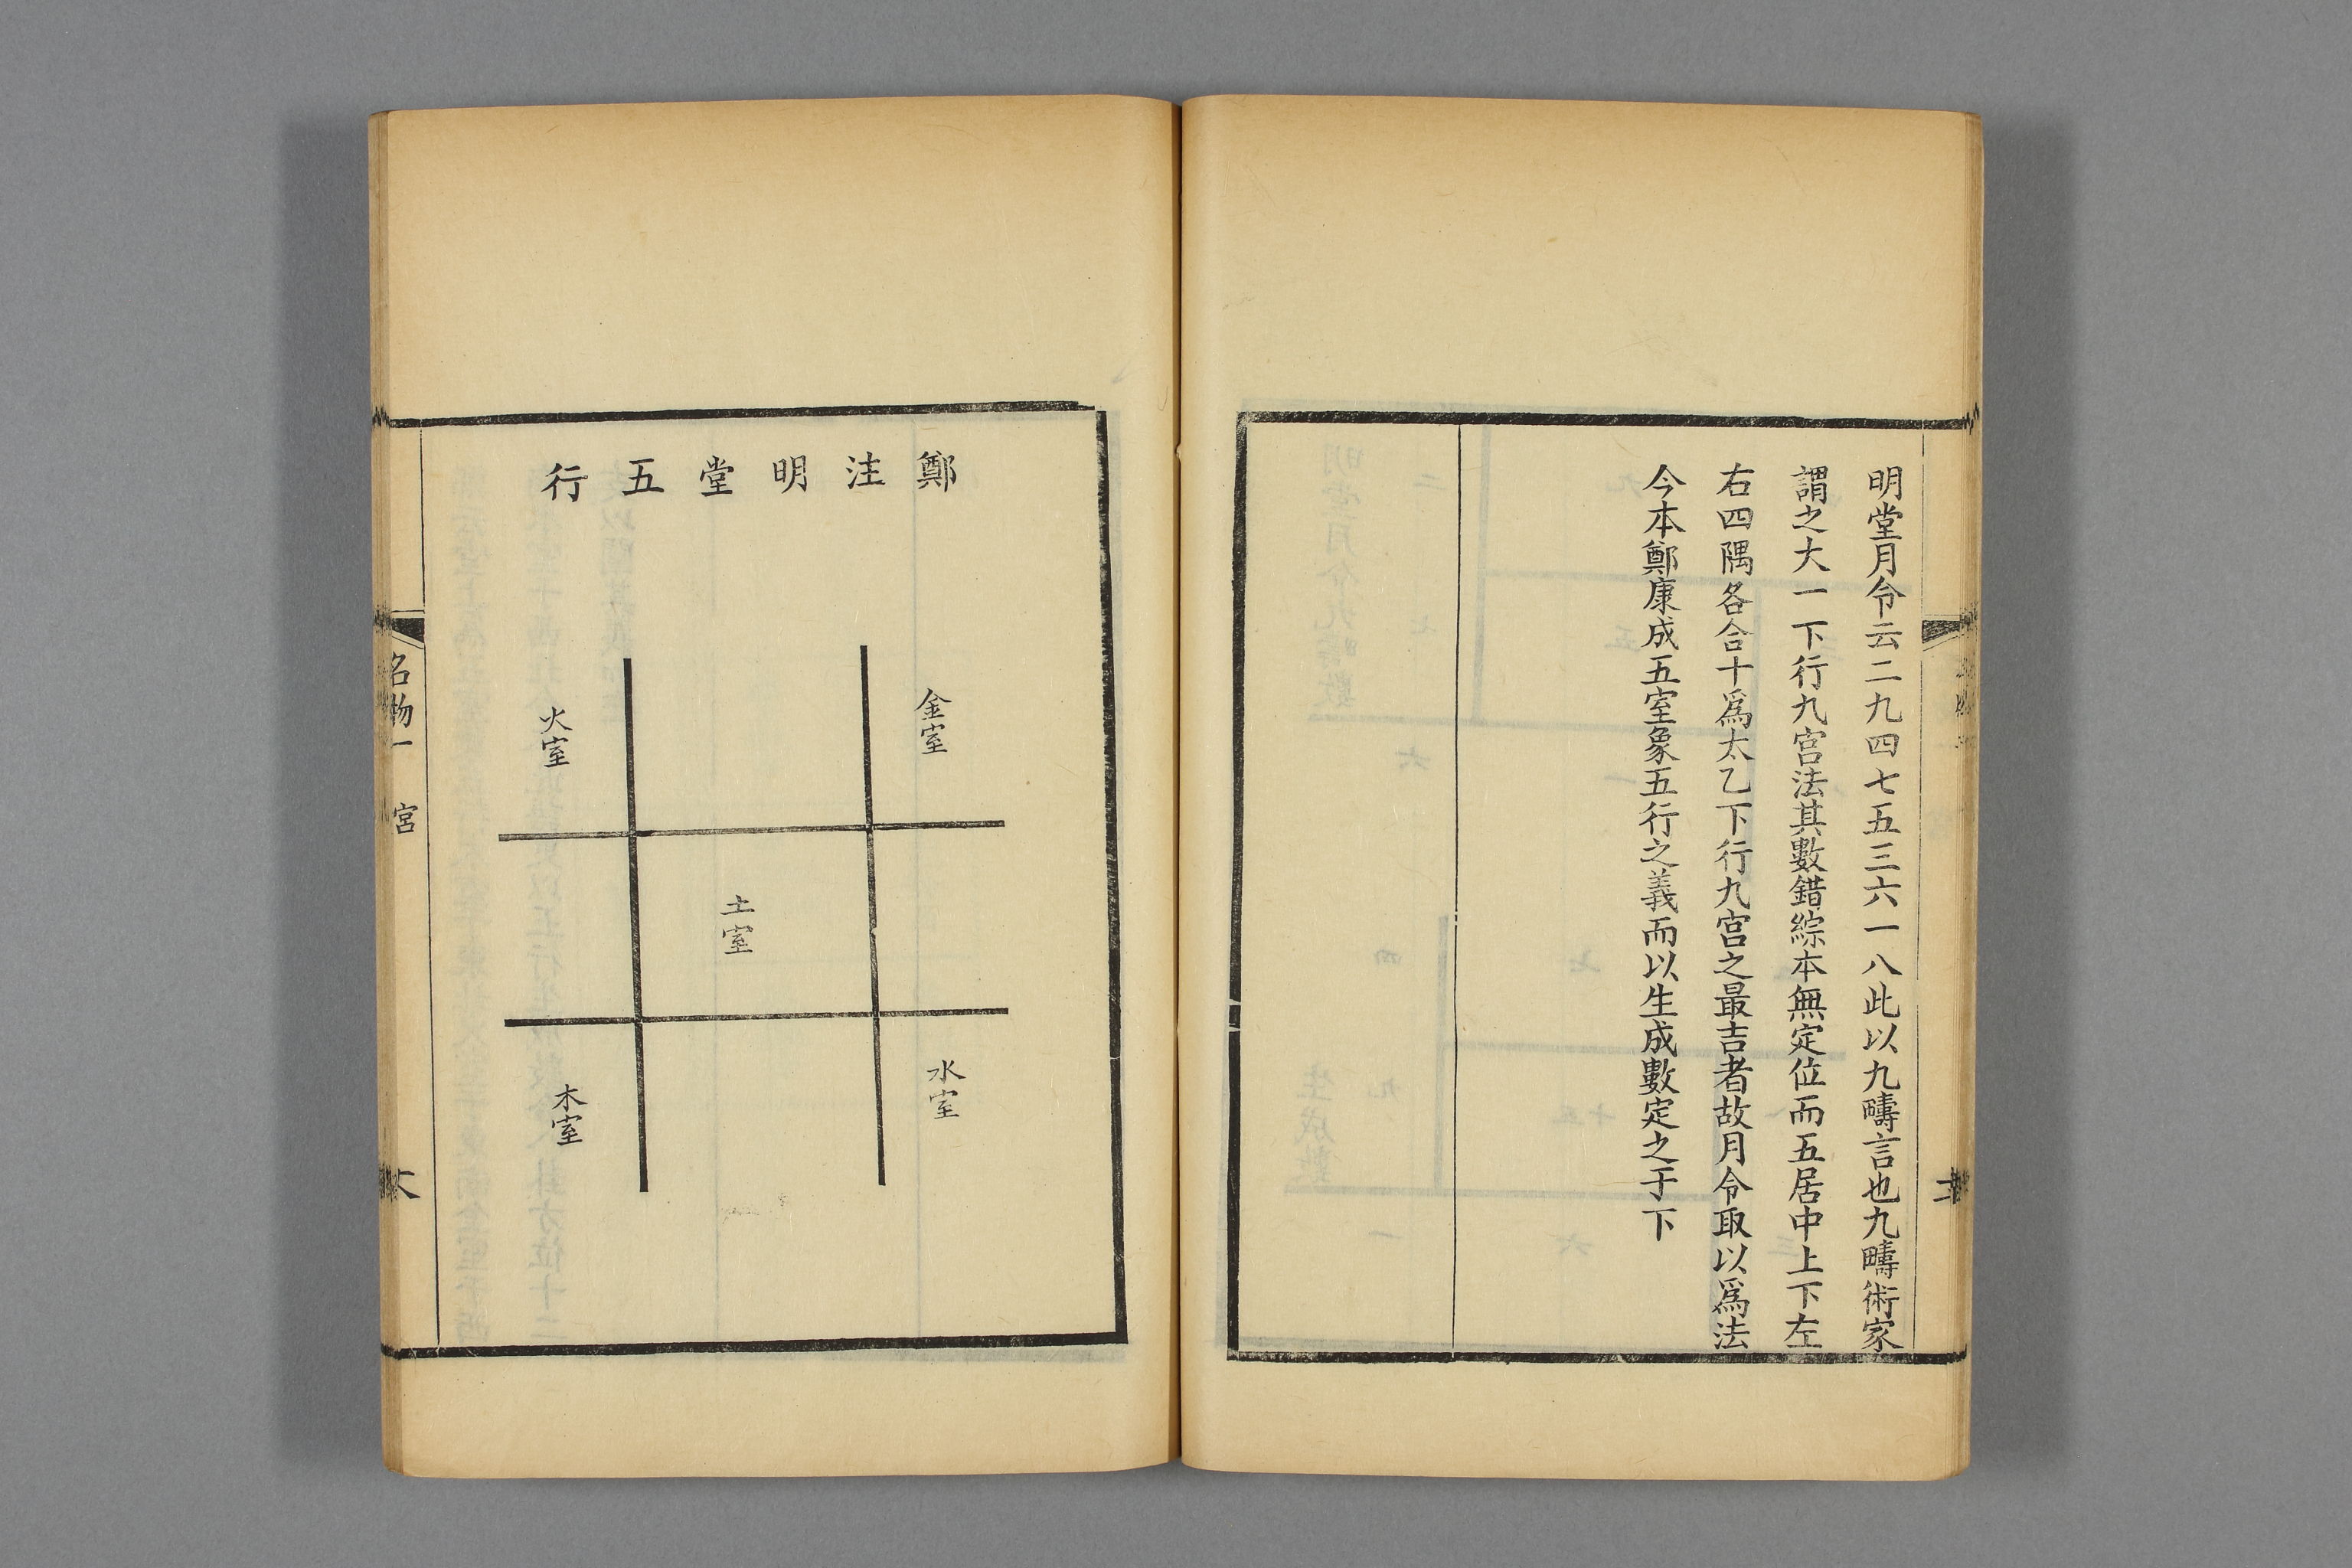 明堂月令云二九四七五三六一八此以九疇言也九疇術家
謂之大一下行九宮法其數錯綜本無定位而五居中上下左
右四隅各合十爲太乙下行九宮之最吉者故月令取以爲法
今本鄭康成五室象五行之義而以生成數定之于下
鄭注明堂五行
金室
火室
土室
水室
木室
名物一 宮